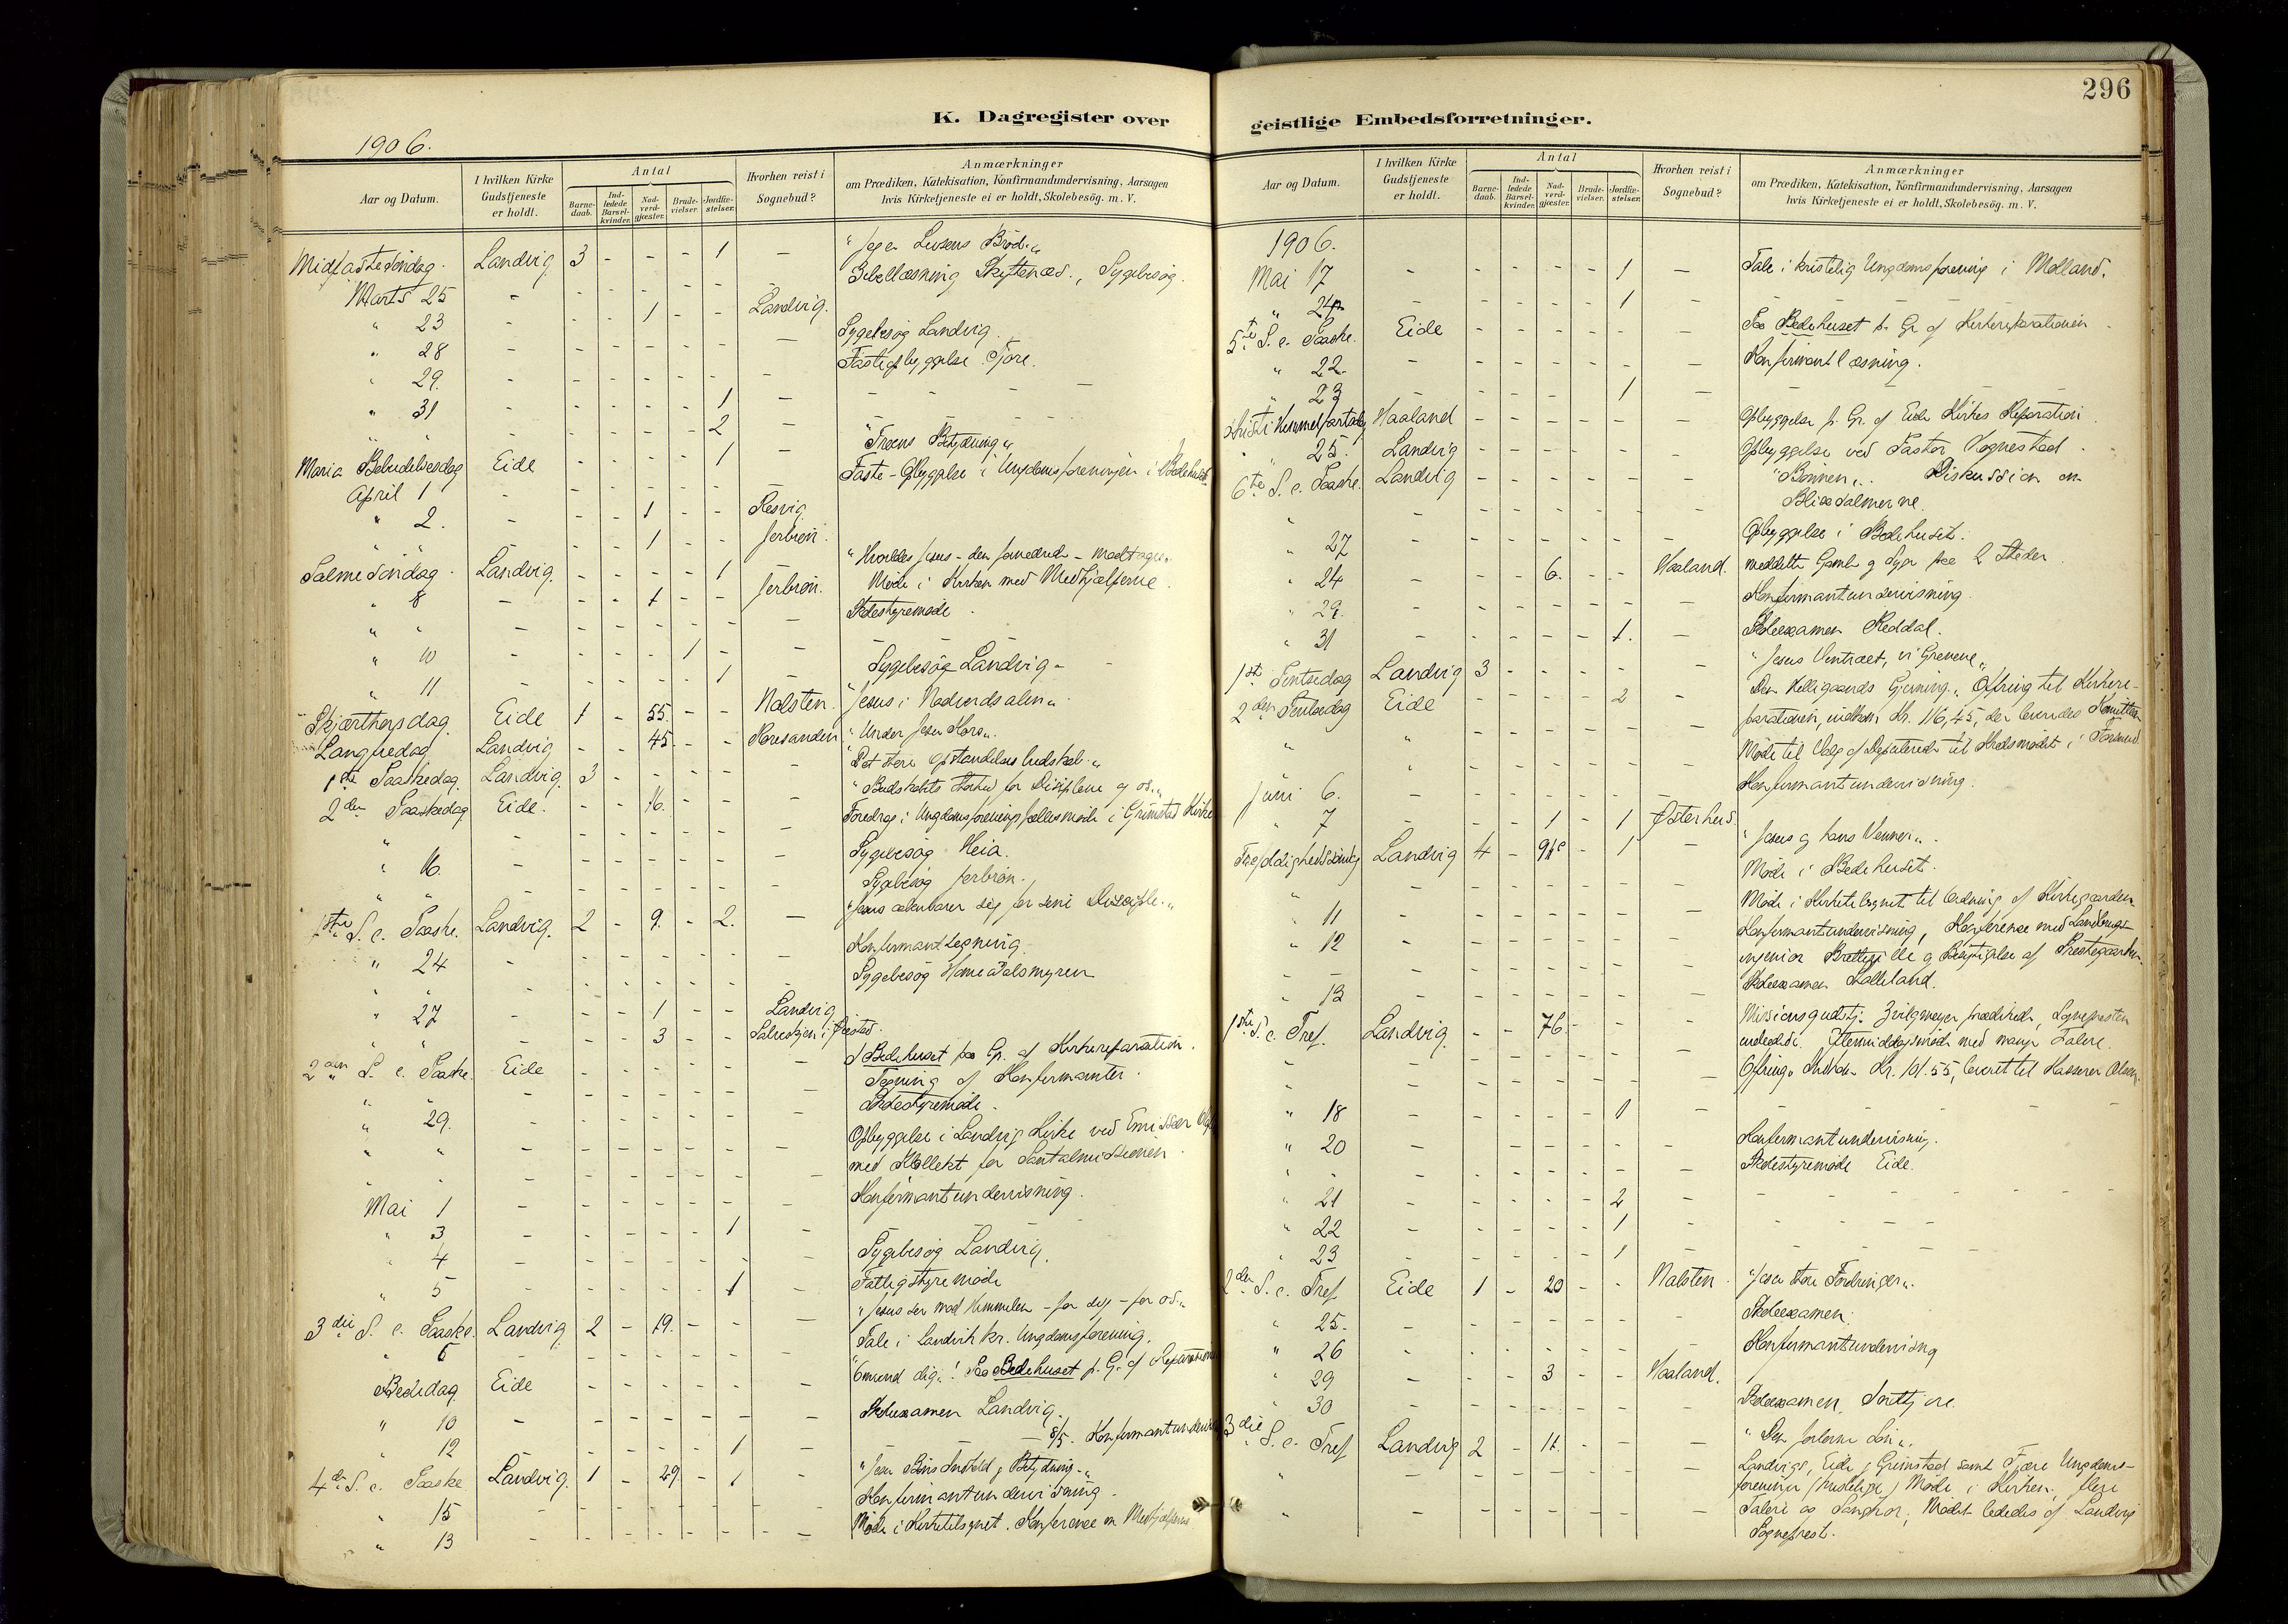 296
K. Dagregister over
geistlige Embedsforretninger.
1906.
Aar og Datum.
I hvilken Kirke Gudstjeneste er holdt.
Antal
Barnedaab.
Indledede Barselkvinder.
Nadverdgjæster.
Brudevielser.
Jordfæstelser.
Hvorhen reist i Sognebud?
Anmærkninger
om Prædiken, Katekisation, Konfirmandundervisning, Aarsagen
hvis Kirketjeneste ei er holdt, Skolebesøg. m. V.
Midfastesöndag. Landvig 3 - - - 1 -
Marts 25 - Bibellæsning Skiftenæs., Sygebesög.
" 23 - - - 1 - - Landvig.
" 28 - - - - - - - Sygebesög Landvig.
" 29. - - - - - - - Fasteopbyggelse Fjære.
" 31 - - - - - 1 -
" " - - - - - 2 -
Maria Bebudelsesdag Eide - - - - 1 - "Troens Betydning"
April 1 - Faste-Opbyggelse i Ungdomsforeningen i Bedehuset
" 2. - - - 1 - - Resvig
" " - - - 1 - - Jerbrön.
Palmesöndag. Landvig. - - - - 1
" 8 - - - 1 - - Jerbrön. Möde i Kirken med Medhjælperne.
" " - - - - - - - Skolestyremöde.
" 10 - - - - 1 - -
" 11 - - - - - 1 - Sygebesög Landvig -
Skjærthorsdag. Eide 1 - 55. - - Nalsten. "Jesus i Nadverdsalen".
Langfredag Landvig - - 45. - - "Under Jesu Kors".
1ste Paaskedag. Landvig. 3 - - - - -
2den Paaskedag Eide. - - 16. - - -
Foredrag i Ungdomsforenings fællesmöde i Grimstad Kirke
" 16. - - - - - - - Sygebesög Heia.
" " - - - - - - - Sygebesög Jerbrön.
1ste S. e. Paaske. Landvig. 2 - 9. - 2. - "Jesus aabenbarer sig for sine Disciple."
" 24 - - - - - - -
" " - - - - - - - Sygebesög
" 27 - - - 1 - - Landvig
" " - - - 3 - -
2den S. e. Paaske. Eide - - - - - - I Bedehuset paa Gr. af Kirkereparation.
" 29. - Tegning af Konfirmanter.
" " - Skolestyremöde.
Opbyggelse i Landvig Kirke ved Emissær
med Kollekt for Santalmissionen.
Mai 1 - - - - - - - Konfirmantundervisning.
" 3 - - - - - 1 -
" 4 - - - - - - - Sygebesög Landvig.
" 5 - - - - - 1 - Fattigstyremöde
3die S. e. Paaske. Landvig 2 - 19. - - - "Jesus ser mod Himmelen - for dig - for os."
" 6 - Tale i Landvik kr. Ungdomsforening.
Bededag. Eide - - - - - - "Omvend dig"! Paa Bedehuset p. G. af Reparationen
" 10 - - - - - - - Skoleexamen Landvig.
" 12 - - - - - 1 - 8/5. Konfirmantunderv
4de S. e. Paaske Landvig. 1 - 29. - 1 - "Jesu Böns Indhold & Betydning."
" 15 - - - - - - - Konfirmantundervisning.
" 13 - - - - - - - Möde i Kirketilsynet. Konference m. Medhjælperne
Aar og Datum.
I hvilken Kirke Gudstjeneste er holdt.
Antal
Barnedaab.
Indledede Barselkvinder.
Nadverdgjæster.
Brudevielser.
Jordfæstelser.
Hvorhen reist i Sognebud?
Anmærkninger
om Prædiken, Katekisation, Konfirmandundervisning, Aarsagen
hvis Kirketjeneste ei er holdt, Skolebesøg. m. V.
1906.
Mai 17 - - - - - 1 - Tale i kristelig Ungdomsforening i Molland.
" 24 - - - - - 1 -
5te S. e. Paaske. Eide - - - - - - Paa Bedehuset p. Gr. af Kirkereparationen.
" 22. - - - - - - - Konfirmantlæsning.
" 23 - - - - - 1 -
Christi Himmelfartsdag Haaland - - - - - - Opbyggelse p. Gr. af Eide Kirkes Reparation.
" 25. Landvig - - - - - - Opbyggelse ved Pastor Vognestad.
6te S. e. Paaske. Landvig - - - - - - "Bönnen". Diskussion om
Blixsalmerne.
" 27 - - - - - - - Opbyggelse i Bedehuset.
" 24 - - - 6. - - Haaland. meddelte Gamle og Syge paa 2 Steder
" 29. - - - - - - - Konfirmantundervisning.
" 31 - - - - - 1. - Skoleexamen Reddal.
1ste Pintsedag Landvig 3 - - - - - "Jesus Vintræet, vi Grenene"
2den Pintsedag Eide - - - - 2 - Den Helligaands Gjerning. Ofring til Kirkere-
parationen, indkom Kr. 116,45, der leveredes Komitten
Möde til Valg af Deputerede til Kredsmödet i
Juni 6. - - - - - - - Konfirmantundervisning.
" 7 - - - 1 - 1 Østerhus.
Trefoldighedssöndag Landvig 4 - - 1 - "Jesus og hans Venner".
" " - Möde i Bedehuset.
" 11 - Möde i Kirketilsynet til Ordning af Kirkegaarden.
" 12 - Konfirmantundervisning, Konference med Landbrugs-
ingeniör og Besigtigelse af Prestegaarden.
" 13 - Skoleexamen
1ste S. e. Tref. Landvig - - 76. - - - Missionsgudstj. prædikede, Sognepresten
indledede. Eftermiddagsmöde med mange Talere.
Ofring. Indkom Kr. 101.55, leveret til Kasserer Olsen.
" 18 - - - - - 1 -
" 20 - - - - - - - Konfirmantundervisning.
" " - - - - - - - Skolestyremöde Eide.
" 21 - - - - - 2 -
" 22 - - - - - 1 -
" 23 - - - - - 1 -
2den S. e. Tref. Eide 1 - 20 - - Nalsten. "Jesu store Fordringer".
" 25. - - - - - - - Skoleexamen.
" 26 - - - - - - - Konfirmantundervisng
" 29 - - - 3 - - Haaland.
" 30 - - - - - - - Skoleexamen
3die S. e. Tref. Landvig 2 - 11. - - - "Den forlorne Sön".
Landvigs, Eide & Grimstad samt Fjære Ungdoms-
foreninger (kristelige) Möde i Kirken, flere
Talere og Sangkor; Mödet lededes af Landvig
Sogneprest.